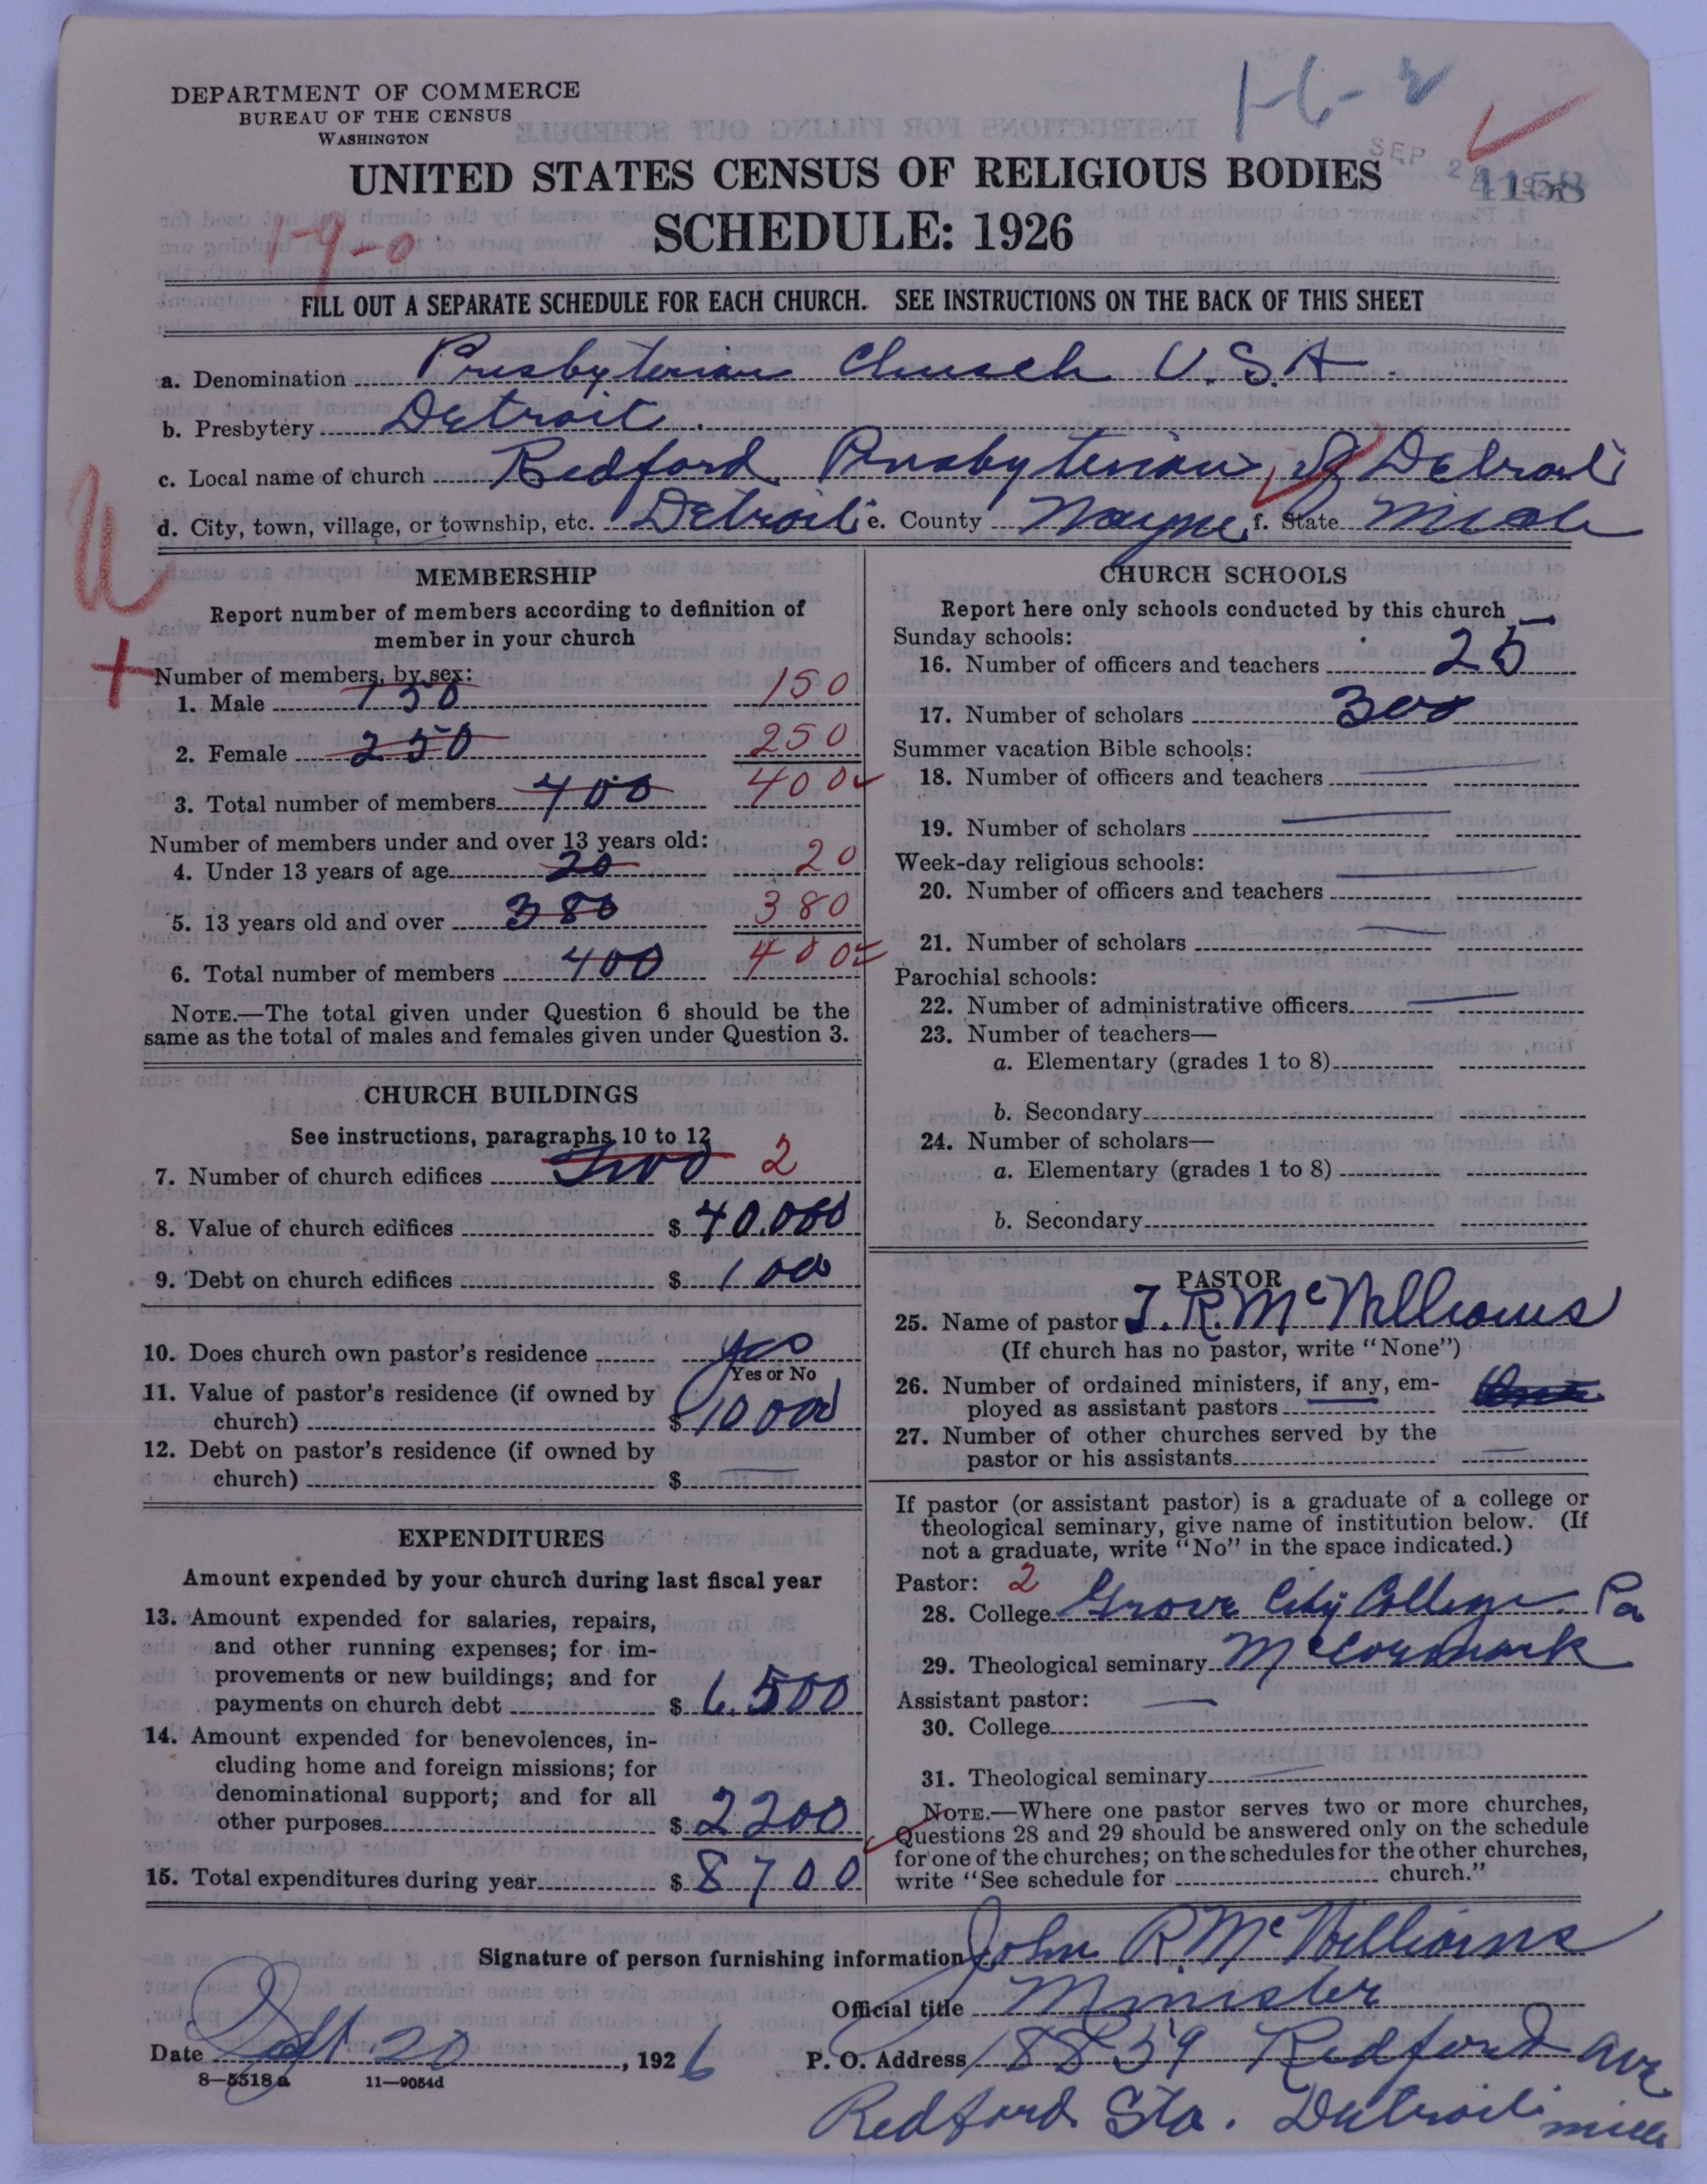 1-6-2
DEPARTMENT OF COMMERCE
BUREAU OF THE CENSUS
WASHINGTON
SEP 2
4158
UNITED STATES CENSUS OF RELIGIOUS BODIES
SCHEDULE: 1926
1-9-0
FILL OUT A SEPARATE SCHEDULE FOR EACH CHURCH. SEE INSTRUCTIONS ON THE BACK OF THIS SHEET
a. Denomination Presbyterian Church U.S.A.
b. Presbytery Detroit.
c. Local name of church Redford Presbyterian, of Detroit
d. City, town, village, or township, etc. Detroit e. County Wayne f. State Mich
MEMBERSHIP
Report number of members according to definition of
member in your church
Number of members, by sex:
1. Male 150 150
2. Female 250 250
3. Total number of members 400 400
Number of members under and over 13 years old:
4. Under 13 years of age 20 20
5. 13 years old and over 380 380
6. Total number of members 400 400
NOTE.—The total given under Question 6 should be the
same as the total of males and females given under Question 3.
CHURCH BUILDINGS
See instructions, paragraphs 10 to 12
7. Number of church edifices two 2
8. Value of church edifices $ 40.000
9. Debt on church edifices $ 100
10. Does church own pastor's residence yes
Yes or No
11. Value of pastor's residence (if owned by
church) $ 10000
12. Debt on pastor's residence (if owned by
church) $
EXPENDITURES
Amount expended by your church during last fiscal year
13. Amount expended for salaries, repairs,
and other running expenses; for im-
provements or new buildings; and for
payments on church debt $ 6.500
14. Amount expended for benevolences, in-
cluding home and foreign missions; for
denominational support; and for all
other purposes $ 2200
15. Total expenditures during year $ 8700
CHURCH SCHOOLS
Report here only schools conducted by this church
Sunday schools:
16. Number of officers and teachers 25
17. Number of scholars 300
Summer vacation Bible schools:
18. Number of officers and teachers
19. Number of scholars
Week-day religious schools:
20. Number of officers and teachers
21. Number of scholars
Parochial schools:
22. Number of administrative officers
23. Number of teachers—
a. Elementary (grades 1 to 8)
b. Secondary
24. Number of scholars—
a. Elementary (grades 1 to 8)
b. Secondary
PASTOR
25. Name of pastor J. R. McWilliams
(If church has no pastor, write "None")
26. Number of ordained ministers, if any, em-
ployed as assistant pastors
27. Number of other churches served by the
pastor or his assistants
If pastor (or assistant pastor) is a graduate of a college or
theological seminary, give name of institution below. (If
not a graduate, write "No" in the space indicated.)
Pastor: 2
28. College Grove City College. Pa
29. Theological seminary McCormack
Assistant pastor:
30. College
31. Theological seminary
NOTE.—Where one pastor serves two or more churches,
Questions 28 and 29 should be answered only on the schedule
for one of the churches; on the schedules for the other churches,
write "See schedule for church."
Signature of person furnishing information John R. McWilliams
Official title Minister
Date Sept 20, 1926 P. O. Address 18859 Redford Ave
8—5518a 11—9054d
Redford Sta. Detroit Mich